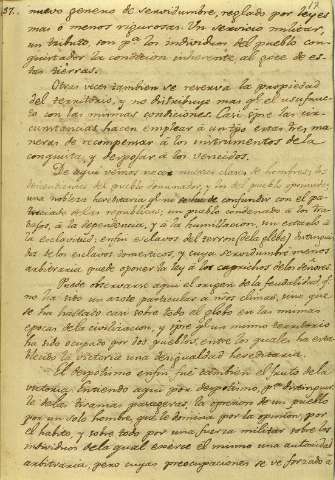 37.
17
nuevo genero de servidumbre, reglado por leyes
mas ó menos rigurosas. Un servicio militar,
un tributo, son pª los individuos del pueblo con-
quistador la condicion inherente al goze de es-
tas tierras.
Otras veces tambien se reserva la propiedad
del territorio, y no distribuye mas qe el usufruc-
to con las mismas condiciones. Casi spre las cir-
cunstancias hacen emplear á un tpo estas tres ma-
neras de recompensar á los instrumentos de la
conquista, y despojar á los vencidos.
De aqui vemos nacer nuevas clases de hombres; los
descendientes del pueblo dominador, y los del pueblo oprimido;
una nobleza hereditaria qe no se ha de confundir con el pa-
triciado de las republicas; un pueblo condenado á los tra-
bajos, á la dependencia, y á la humillacion, sin estarlo á
la esclavitud; enfin esclavos del terron (de la gleba) distingui-
dos de los esclavos domesticos, y cuya servidumbre menos
arbitraria puede oponer la ley á los caprichos de los señores.
Puede observarse aqui el origen de la feudalidad, qe
no ha sido un azote particular a nros climas, sino que
se ha hallado casi sobre todo el globo en las mismas
epocas de la civilizacion, y spre qe un mismo territorio
ha sido ocupado por dos pueblos, entre los quales ha esta-
blecido la victoria una desigualdad hereditaria.
El despotismo enfin fue tambien el fruto de la
victoria. Entiendo aqui por despotismo, pª distinguir-
le de las tiranias pasageras, la opresion de un pueblo
por un solo hombre, que le domina por la opinion, por
el habito, y sobre todo por una fuerza militar sobre los
individuos de la qual exerce él mismo una autoridad
arbitraria, pero cuyas preocupaciones se vé forzado á